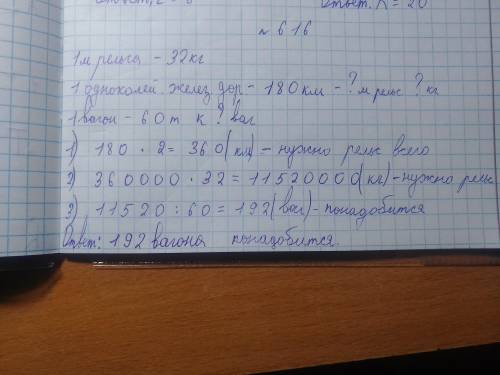 Ответ: К = 20
№ 616
1 м рельса – 32 кг
1 одноколей. желез. дор – 180 км – ? м рельс ? кг
1 вагон – 60 т к ? ваг
1) 180 · 2 = 360 (км) – нужно рельс всего
2) 360000 · 32 = 11520000 (кг) – нужно рельс
3) 11520 : 60 = 192 (ваг) – понадобится
Ответ: 192 вагона понадобится.